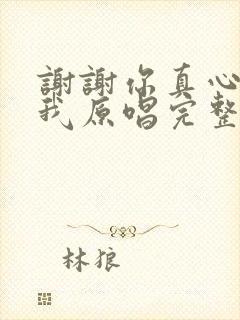 謝謝你真心
我原唱完整
林狼